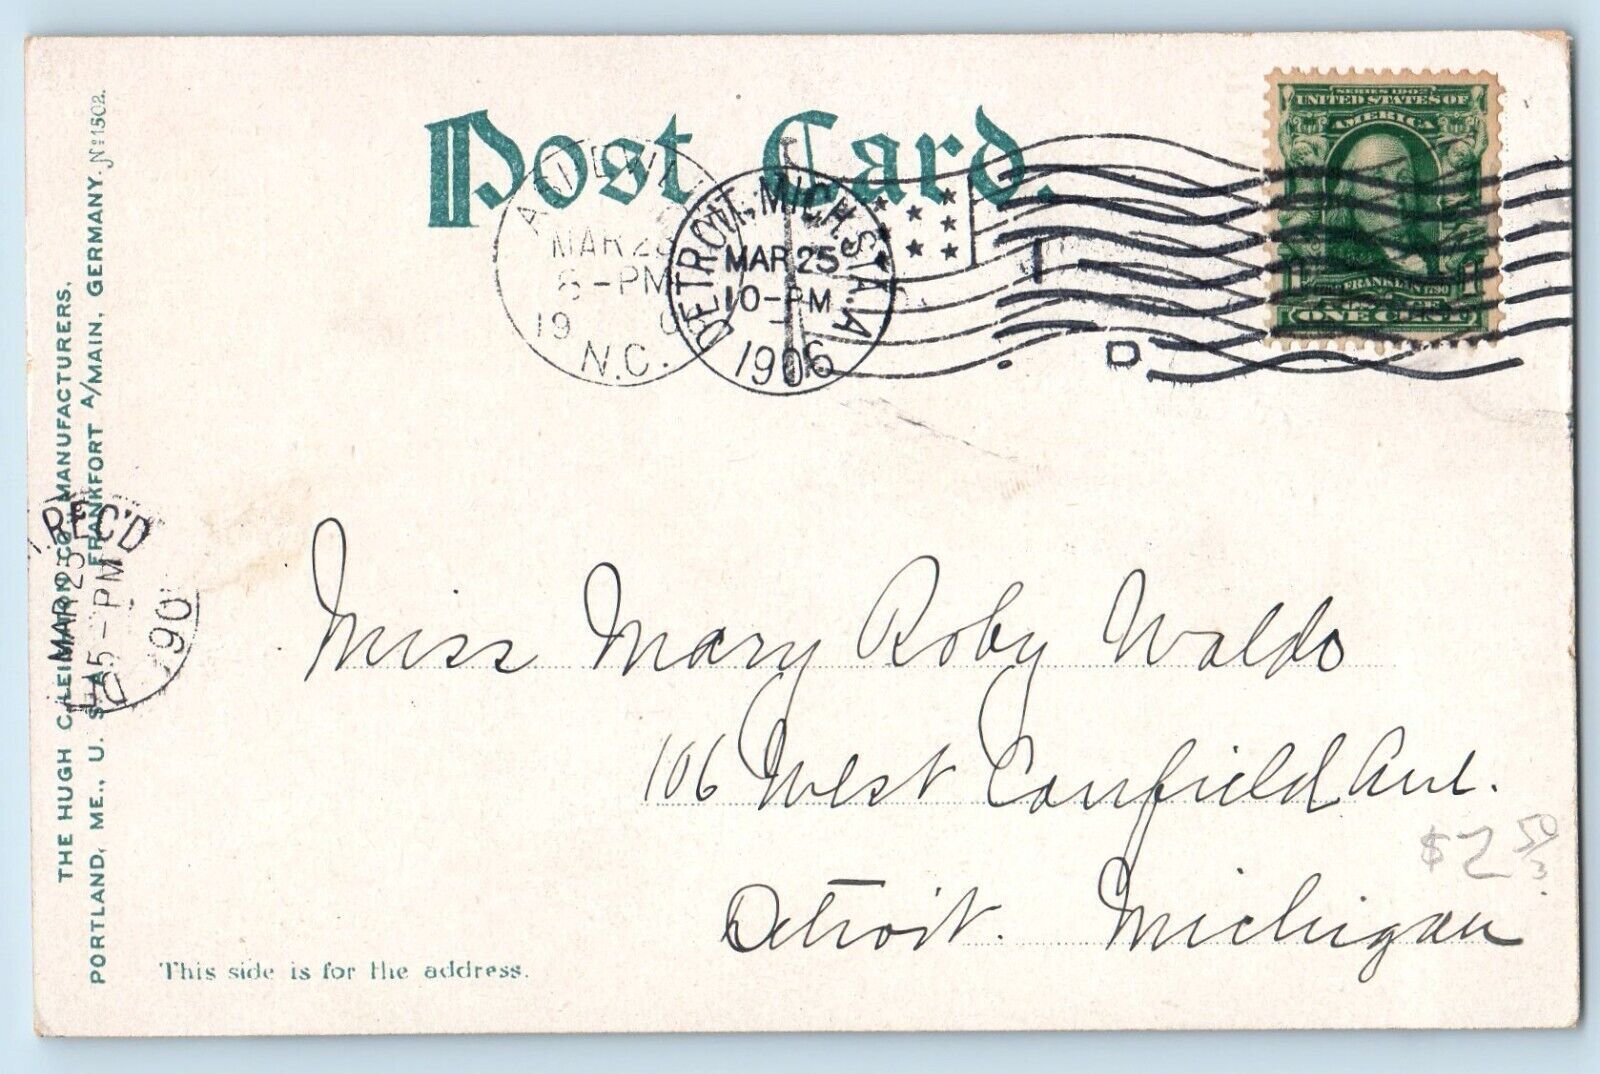 Post Card.
SERIES 1902
UNITED STATES OF
AMERICA
FRANKLIN 1790
ONE
MAR 2
8-PM
19
N.C.
DETROIT, MICH. STA. A
MAR 25
10-PM
1906
D
REC'D
MAR 25
5-PM
190
THE HUGH C. LEIGHTON CO. MANUFACTURERS,
PORTLAND, ME., U. S. A. FRANKFORT A/MAIN, GERMANY. No 1502.
Miss Mary Roby Waldo
106 West Canfield Ave.
Detroit. Michigan
$2 50
This side is for the address.